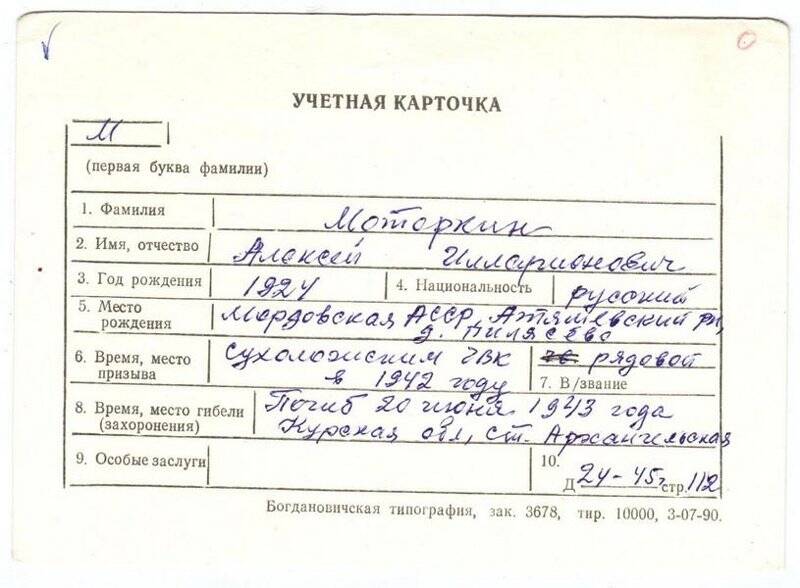 УЧЕТНАЯ КАРТОЧКА
М
(первая буква фамилии)
1. Фамилия Моторкин
2. Имя, отчество Алексей Илларионович
3. Год рождения 1924 4. Национальность русский
5. Место рождения Мордовская АССР, Атяшевский рн,
д. Пилясево
6. Время, место призыва Сухоложским ГВК
в 1942 году
рядовой
7. В/звание
8. Время, место гибели (захоронения) Погиб 20 июня 1943 года
Курская обл, ст. Архангельская
9. Особые заслуги
10.
Д 24-45г стр. 112
Богдановичская типография, зак. 3678, тир. 10000, 3-07-90.